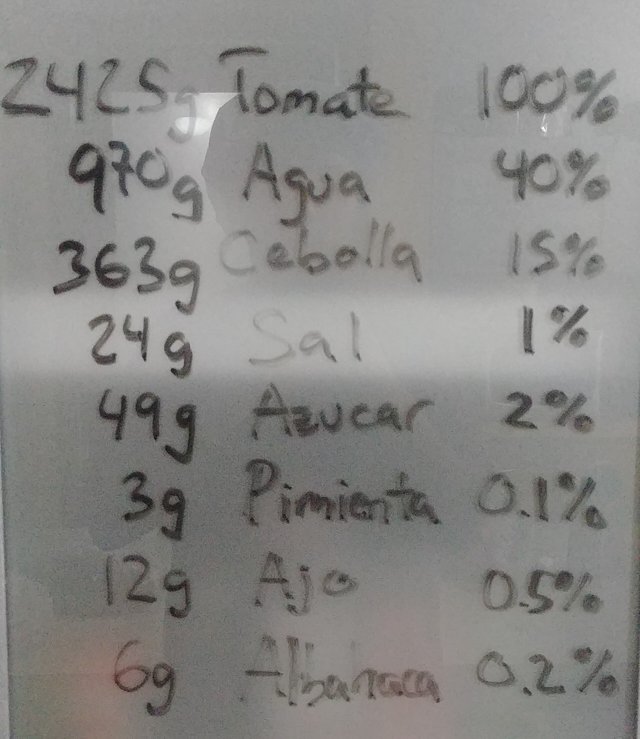 2425g Tomate 100%
970g Agua 40%
363g Cebolla 15%
24g Sal 1%
49g Azucar 2%
3g Pimienta 0.1%
12g Ajo 0.5%
6g Albaraca 0.2%